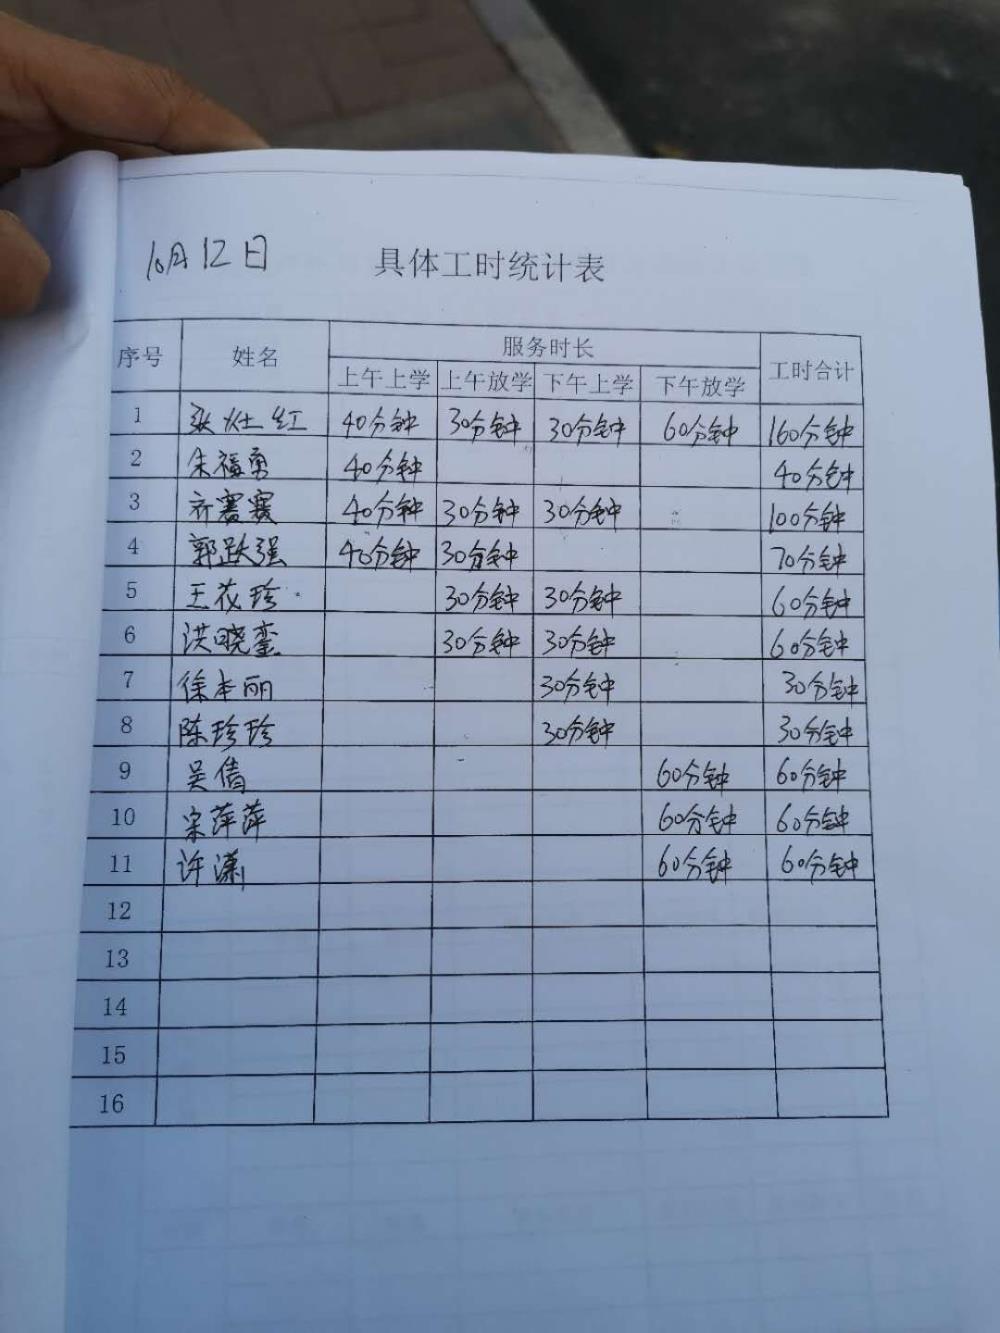 10月12日 具体工时统计表
序号 姓名 服务时长 工时合计
上午上学 上午放学 下午上学 下午放学
1 张灶红 40分钟 30分钟 30分钟 60分钟 160分钟
2 朱福勇 40分钟 40分钟
3 齐赛赛 40分钟 30分钟 30分钟 100分钟
4 郭跃强 40分钟 30分钟 70分钟
5 王花珍 30分钟 30分钟 60分钟
6 洪晓銮 30分钟 30分钟 60分钟
7 徐本丽 30分钟 30分钟
8 陈珍珍 30分钟 30分钟
9 吴倩 60分钟 60分钟
10 宋萍萍 60分钟 60分钟
11 许潇 60分钟 60分钟
12
13
14
15
16